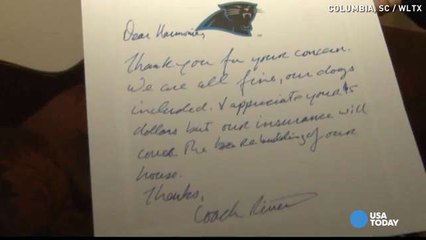 COLUMBIA, SC / WLTX
Dear Harmonie,
Thank you for your concern.
We are all fine, our dogs
included. I appreciate your $5
dollars but our insurance will
cover the rebuilding of our
house.
Thanks,
Coach
USA
TODAY